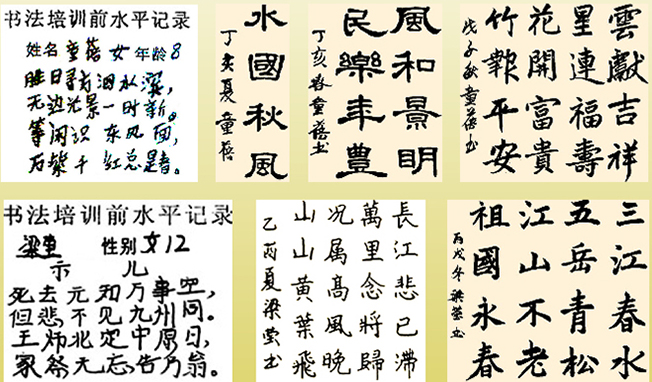 书法培训前水平记录
姓名 童蓓 女 年龄 8
胜日寻芳泗水滨,
无边光景一时新。
等闲识 东风面,
万紫千红总是春。
水國秋風
丁亥夏童蓓
風和景明
民樂年豊
丁亥春童蓓书
雲獻吉祥
星連福壽
花開富貴
竹報平安
戊子秋童蓓书
书法培训前水平记录
梁莹 性别女12
示 儿
死去元知万事空,
但悲不见九州同。
王师北定中原日,
家祭无忘告乃翁。
長江悲已滯
萬里念將歸
况属高風晚
山山黄葉飛
乙丙夏梁莹书
三江春水
五岳青松
江山不老
祖國永春
丙戌年梁莹书